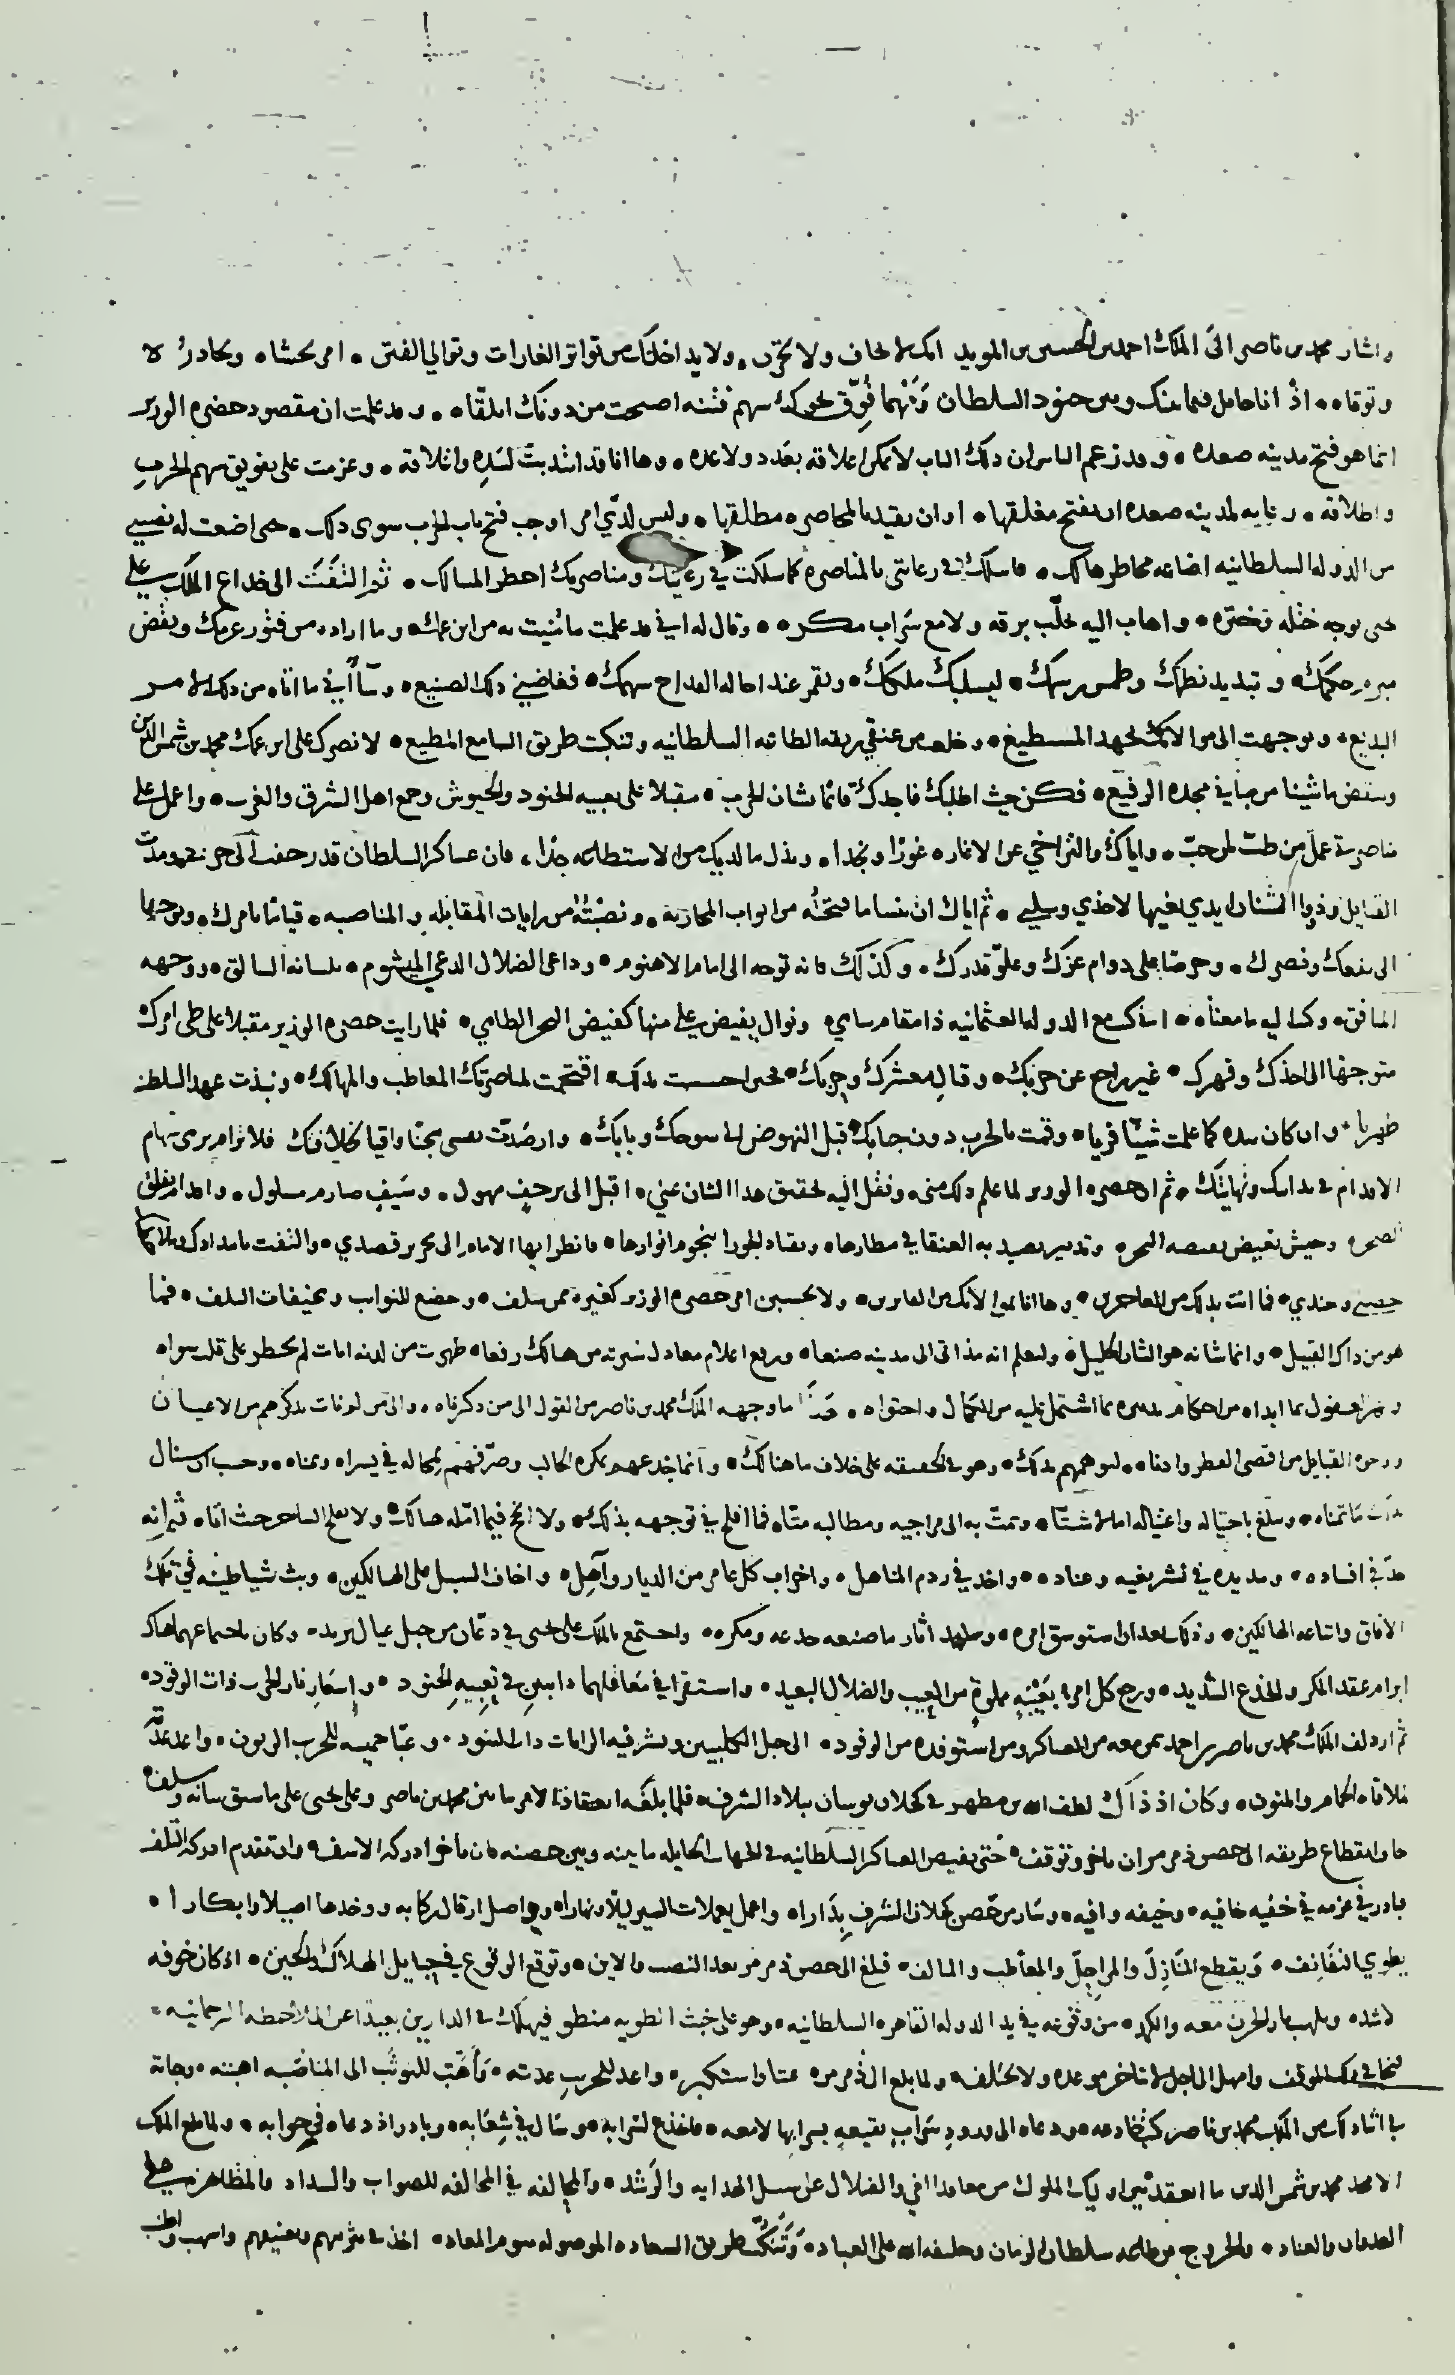 واشار محمد بن ناصر الى الملك احمد بن الحسين بن المويد انك لا تخاف ولا تحزن ولا يداخلك من تواتر الغارات وتوالي الفتن امر تخشاه وتحاذره
وتوقاه اذ انا حامل فيما بينك وبين جنود السلطان ومهما فُوّق نحوك سهم فتنه اصبحت من دونك اتلقاه وقد علمت ان مقصود حضره الوزير
انما هو فتح مدينه صعده وقد زعم الناس ان ذلك الباب لا يمكن اغلاقه بعَدد ولا عده وها انا قد انتدبت لسَدِه واغلاقه وعزمت على تفويق سهم الحرب
واطلاقه لمدينه صعده ان يفتح مغلقها او ان يقيد بالمحاصره مطلقها وليس لدَيّ امر اوجب فتح باب الحرب سوى ذلك حتى اضعت له نفسي
من الدوله السلطانيه اضاعه مخاطر هالك فاسلك في رعايتي بالمناصره كما سلكت في رعايتك ومناصرتك اخطر المسالك ثم التَفَتَ الى خداع الملك علي
يحيى بوجه ختله وختره واهاب اليه خلّب برقه ولامع سَراب مكره وقال له اني قد علمت ما مُنيت به من ابن عمك وما اراده من فتور عزمك ونقض
مبرم حكمك وتبديد نظمك وطمس رسمك ليسلبك ملكك ويقمر عند اجاله القداح سهمك فغاضني ذلك الصنيع وسآأني ما اتاه من ذلك الامر
البديع وتوجهت الى موالاتك بجهد المستطيع وخلعت من عنقي ربقه الطاعه السلطانيه وتنكبت طريق السامع المطيع لانصرك على ابن عمك محمد بن شمس الدين
وننقض ما شيتا من مباني مجده الرفيع فكن حيث اطلبك فاجدك قائما بشان الحرب مقبلا على تعبيه الجنود والجيوش وجمع اهل الشرق والغرب واعمل على
مناصرتي عمل من طبّ لمن حبّ واياك والتراخي عن الاغاره غورًا ونجدا وبذل ما لديك من الاستطاعه جدا فان عساكر السلطان قد زحفت الى حربي ومدت
القبايل وذووا الشنان ايدي بغيها لاخذي وسلبي ثم اياك ان تنسا ما فتحتُه من ابواب المحاربه ونصبتُهُ من رايات المقابله والمناصبه قيامًا بامرك وتوجها
الى نفعك ونصرك وحرصًا على دوام عزك وعلوّ قدرك وكذلك فانه توجه الى امام الاهنوم وداعي الضلال الدعي الميشوم بلسانه السالق ووجهه
المنافق وكتب اليه ما معناه اني كنت مع الدوله العثمانيه ذا مقام سامي ونوال يفيض علي منها كفيض البحر الطامي فلما رايت حضره الوزير مقبلا على طي امرك
متوجهًا الى اخذك وقهرك غير راجع عن حزبك وقتاله معشرك وحربك حين احسست بذلك اقتحمت لمناصرتك المعاطب والمهالك ونبذت عهد السلطنه
ظهريا وان كان نبذه كما علمت شيًا فريا وقمت بالحرب دون جنابك قبل النهوض الى سوحك وبابك وارصَدت نفسي مجنًا واقيا لخلافتك فلا تُرام برمي سهام
الاقدام في بدايتك ونهايتك ثم ان حضره الوزير لما علم ذلك مني ونُقل اليه تحقيق هذا الشان عني اقبل الى بزحفٍ مهول وسَيفٍ صارم مسلول واقدام يفلق
الصخره وجيش تغيض بغصه البحره وتدبير يصيد به العنقا في مطارها ويقتاد الجوزا بنجوم انوارها فانظر ايها الامام الى تحرير قصدي والتفت بامدادك
جيشي وجندي فما انت بذلك من العاجزين وها انا بموالاتك من الفايزين ولا تحسبن امر حضره الوزير كغيره ممن سلف وخضع للنواب وتخيفات السلف فما
هو من ذاك القبيل وانما شانه هو الشان الجليل ولتعلم انه مذ اتى الى مدينه صنعا ورفع اعلام معادل سيرته من هنالك رفعا ظهرت من لدنه ايات لم تخطر على قلب سواه
وبهر العقول بما ابداه من احكام تدبيره مما اشتمل عليه من الكمال واحتواه هذا ما وجهه الملك محمد بن ناصر من القول الى من ذكرناه والى من لو فات بذكرهم من الاعيان
ووجوه القبايل من اقصى القطر وادناه ليوهمهم بذلك وهو في الحقيقه على خلاف ما هنالك وانما خدعهم بمكره الخالب وصرّفهم بمحاله في يسراه ويمناه وحسب ان سينال
بذلك ما تمناه ويبلغ باحتياله واغتياله امالًا شتّا ويمتّ به الى مراجيه ومطالبه متّا فما افلح في توجهه بذلك ولا انجح فيما امّله هنالك ولا يفلح الساحر حيث اتا ثم انه
جدّ في افساده ومد يده في تشريقيه وعناده واخذ في ردم المناهل واخراب كل عامر من الديار وآهِل واخاف السبل على السالكين وبث شياطينه في تلك
الافاق واتباعه الهالكين وذلك بعد ان استوسق امره وظهرت اثار ما صنعه خدعه ومكره واجتمع بالملك علي يحيى في دعّان من جبل عيال يزيد وكان باجتماعهما هناك
ابرام عقد المكر والخدع الشديد ورجع كل امرء بعَيْبَهٍ مملوّةٍ من العيب والضلال البعيد واستقرا في مَعاقلهما دابين في تعبِيهِ الجنود وإسعَارِ نار الحرب ذات الوقود
ثم ازدلف الملك محمد بن ناصر بن احمد بمن معه من العساكر ومن استوفده من الوفود الى جبل الكلبيين ونشر فيه الرايات والبنود وعبّا خميسه للحرب الزبون واعد عدته
لملاقاه الحمام والمنون وكان اذ ذاك لطف الله بن مطهر في كحلان بوسان ببلاد الشرف فلما بلغه انعقاد الامر ما بين محمد بن ناصر وعلي يحيى على ما سبق بيانه وسلف
خاف انقطاع طريقه الى حصن ذمرمر ان تاخر وتوقف حتى تفيض العساكر السلطانيه في الجهات الحايله ما بينه وبين حصنه فان تاخر ادركه الاسف وان تقدم ادركه التلف
فبادر في عزمه في خفيه خافيه وخيفه وافيه وسَار من حصن كحلان الشرفِ بِدَارا واعمل يعملات السير ليلًا ونهارا وواصل ارقال ركابه ووخدها اصيلا وابكارا
يطوي النفانِف وَيقطع المنَازِلَ والمراحِلّ والمعاطب والمتالف فبلغ الى حصن ذمرمر بعد النصب والاين وتوقع الوقوع في حبايل الهلاك والحين اذ كان خوفه
لاشد وتلهب نار الحزن معه والكمد من وقوعه في يد الدوله القاهره السلطانيه وهو على خبث الطويه منطو فيهلك في الدارين بعيدًا عن الملاحظه الرحمانيه
فنجا في ذلك الموقف وامهل الى اجل لا تتاخر موعده ولا يختلف ولما بلغ الى ذمرمر عتا واستكبر واعد للحرب عدته وَتأهّبَ للتوثب الى المناصَبه اهبته وجاته
في اثنا ذلك من الملك محمد بن ناصر كتب مخادعه ودعاه الى ورودِ سَرابِ بقيعهٍ بسرابها لامعه فانخدع لسرابه وسَال في شِعَابه وبادر اذ دعاه في جوابه ولما بلغ الملك
الامجد محمد بن شمس الدين ما انعقد بين اوليك الملوك من معاهدا الغي والضلال عن سبل الهدايه والرَشد والمجالفه في المخالفه للصواب والسداد والمظاهره على
العدوان والعناد والخروج من طاعه سلطان الزمان وخليفه الله على العباد وَتَنَكُّبِ طريق السعاده الموصوله بيوم المعاد اخذ في تثريبهم وتعنيفهم واسهب واطنب